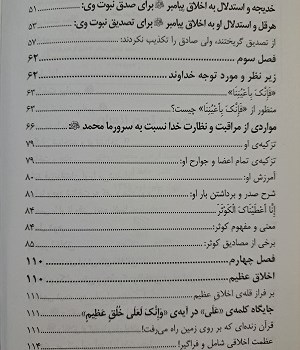 خدیجه و استدلال به اخلاق پیامبر ﷺ برای صدق نبوت وی: ۵۱
هرقل و استدلال او به اخلاق پیامبر ﷺ برای تصدیق نبوت وی: ۵۳
از تصدیق گریختند، ولی صادق را تکذیب نکردند: ۵۷
فصل سوم ۶۲
زیر نظر و مورد توجه خداوند ۶۲
«فَإِنَّکَ بِأَعْیُنِنَا» ۶۳
منظور از «فَإِنَّکَ بِأَعْیُنِنَا» چیست؟ ۶۳
مواردی از مراقبت و نظارت خدا نسبت به سرورما محمد ﷺ ۶۶
تزکیه‌ی او: ۷۹
تزکیه‌ی تمام اعضا و جوارح او: ۷۹
آمرزش او: ۸۰
شرح صدر و برداشتن بار او: ۸۱
إِنَّا أَعْطَیْنَاکَ الْکَوْثَرَ ۸۴
معنی و مفهوم کوثر: ۸۴
برخی از مصادیق کوثر: ۸۵
فصل چهارم ۱۱۰
اخلاق عظیم ۱۱۰
بر فراز قله‌ی اخلاقِ عظیم ۱۱۱
جایگاه کلمه‌ی «عَلَی» در آیه‌ی «وَإِنَّکَ لَعَلَی خُلُقٍ عَظِیمٍ» ۱۱۱
قرآن زنده‌ای که بر روی زمین راه می‌رفت! ۱۱۱
عظمت اخلاقی شامل و فراگیر! ۱۱۴